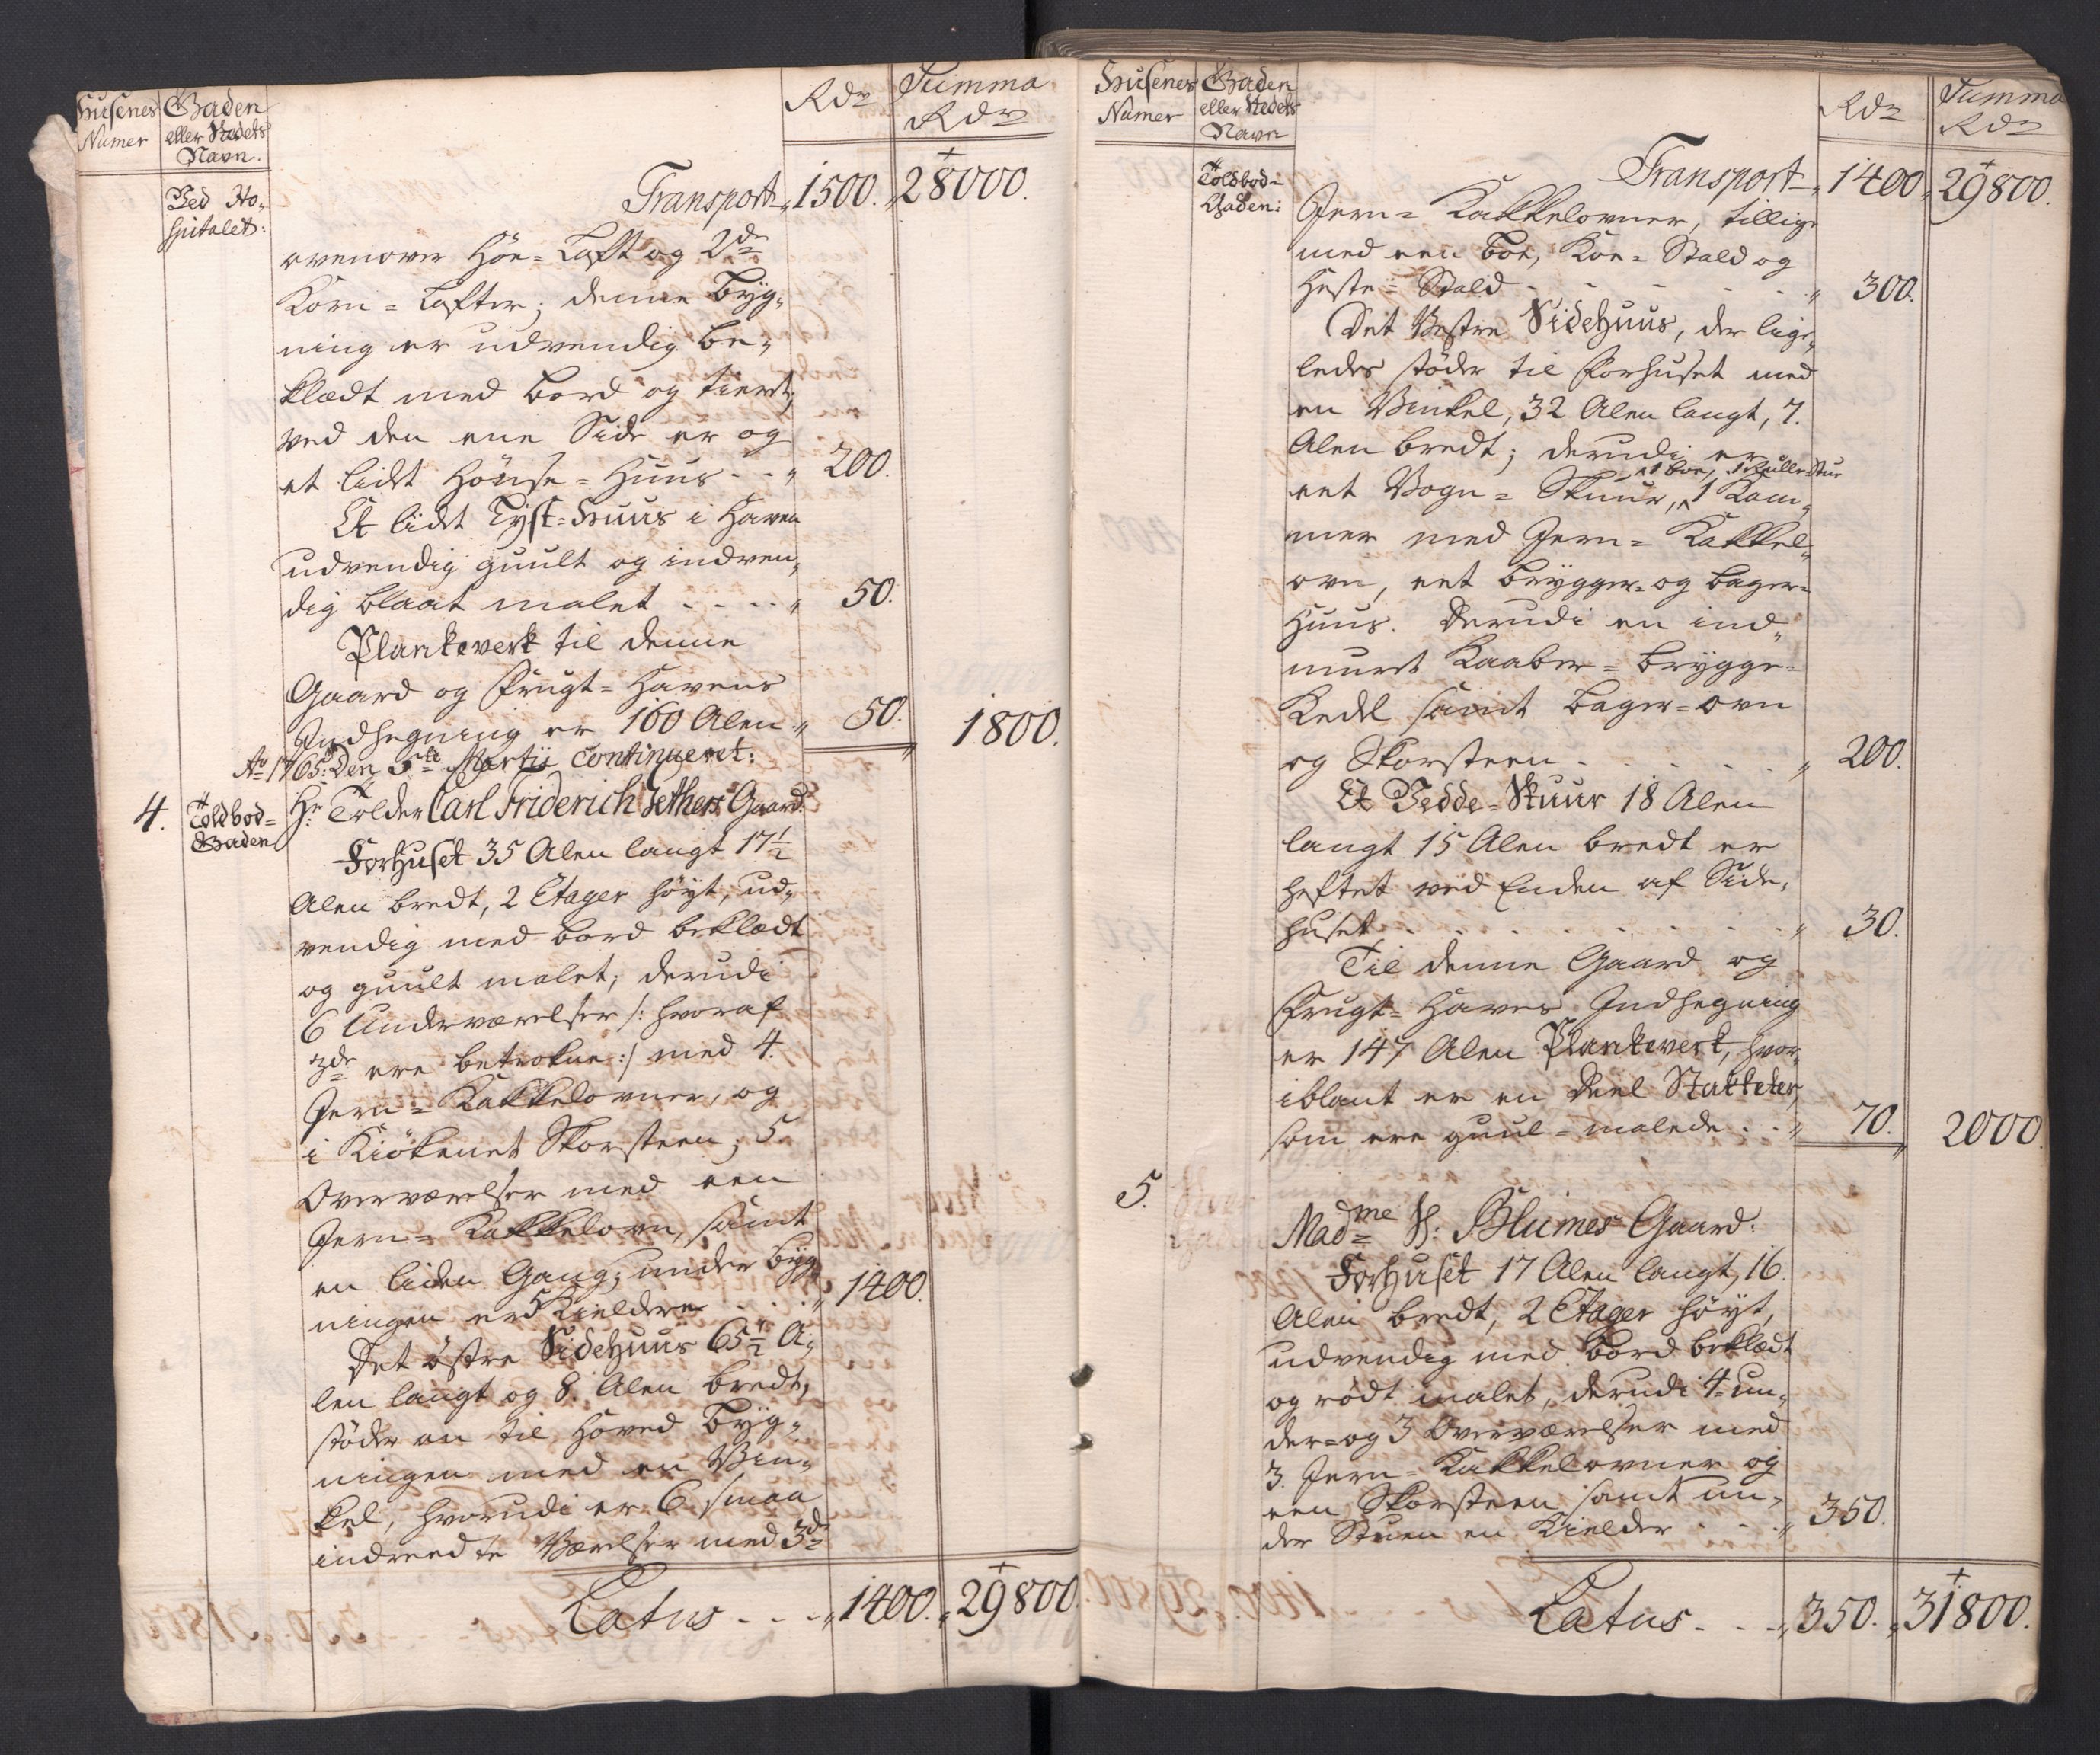 Husenes Numer
Gaden eller Stedets Navn.
Rdr
Summa Rdr
Ved Ho-
spitalet:
Transport 1500. 28000.
ovenover Höe-Loft og 2de
Korn-Lofter; denne Byg-
ning er udvendig be-
klædt med Bord og tiert;
ved den ene Side er og
et lidt Hönse-Huus - - 200.
Et lidt Lyst-Huus i Haven
udvendig guult og indven-
dig blaat malet - - - 50.
Plankeverk til denne
Gaard og Frugt-Havens
Indhegning er 160 Alen 50. 1800.
Ao 1765. Den 5te Martij Continueret:
4. Toldbod-
Gaden
Hr. Tolder Carl Friderich Gaard:
Forhuset 35 Alen langt 17 1/2
Alen bredt, 2 Etager höyt, ud-
vendig med Bord beklædt
og guult malet; derudi
6 Underværelser /: hvoraf
3de ere betrokne :/ med 4.
Jern-Kakkelovner, og
i Kiökenet Skorsteen; 5
Overværelser med een
Jern-Kakkelovn, samt
en liden Gang; under Byg-
ningen er 5 Kieldere - - 1400.
Det östre Sidehuus 65 1/2 A-
len langt og 8. Alen bredt,
stöder an til Hoved Byg-
ningen med en Vin-
kel, hvorudi er 6 smaa
indreedte Værelser med 3de
Latus - - - 1400. 29800.
Husenes Numer
Gaden eller Stedets Navn
Rdr
Summa Rdr
Toldbod-
Gaden:
Transport 1400. 29800.
Jern-Kakkelovner, tillige
med een Boe, Koe-Stald og
Heste-Stald - - - - - 300.
Det Vestre Sidehuus, der lige-
ledes stöder til Forhuset med
en Vinkel, 32 Alen langt, 7.
Alen bredt; derudi er
1 Boe, 1 Rulle-Stue
eet Vogn-Skuur, 1 Kam-
mer med Jern-Kakkel-
ovn, eet Brygger- og Bager-
Huus. Derudi en ind-
muret Kaaber-Brygge-
Kedel samt Bager-Ovn
og Skorsteen - - - - - 200.
Et Vedde-Skuur 18 Alen
langt 15 Alen bredt er
heftet ved Enden af Side-
huset - - - - - - - - 30.
Til denne Gaard og
Frugt-Haves Indhegning
er 147 Alen Plankeverk, hvor-
iblant er en Deel Stakketer,
som ere guul-malede - - 70. 2000.
5.
Madme S: Blumes Gaard:
Forhuset 17 Alen langt, 16.
Alen bredt, 2 Etager höyt,
udvendig med Bord beklædt
og rödt malet, derudi 4-un-
der- og 3 Overværelser med
3. Jern-Kakkelovner og
een Skorsteen samt un-
der Stuen en Kielder - - - 350.
Latus - - - 350. 31800.